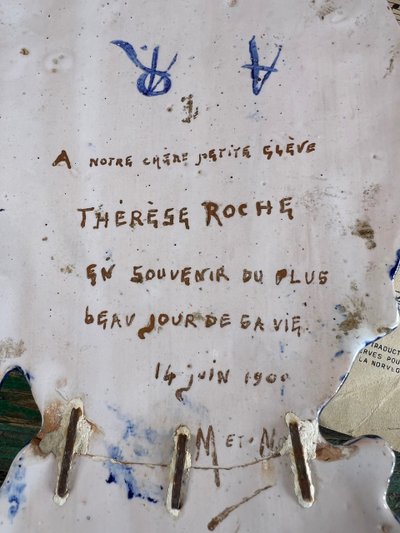 AR
1
A NOTRE CHÈRE PETITE ELÈVE
THÉRÈSE ROCHE
EN SOUVENIR DU PLUS
BEAU JOUR DE SA VIE
14 JUIN 1900
M ET N
TRADUCT
RVES POU
LA NORVEG